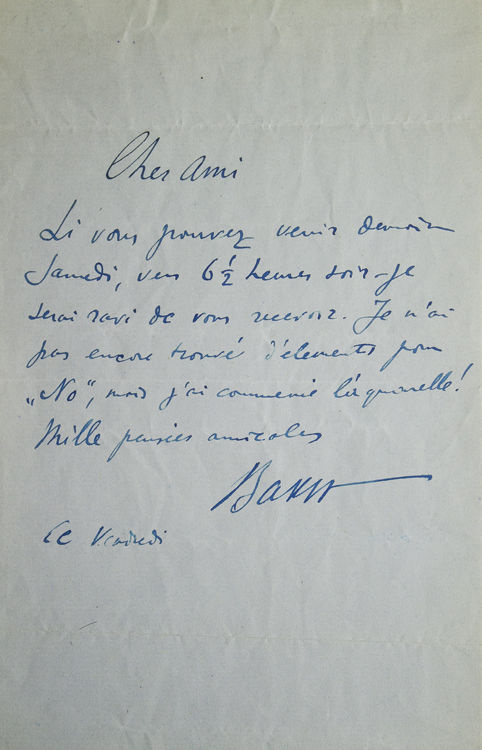 Cher ami
Si vous pouvez venir demain
Samedi, vers 6½ heures soir – je
serai ravi de vous recevoir. Je n'ai
pas encore trouvé d'elements pour
„No", mais j'ai commencé l'aquarelle!
Mille pensées amicales
Bakst
Ce Vendredi